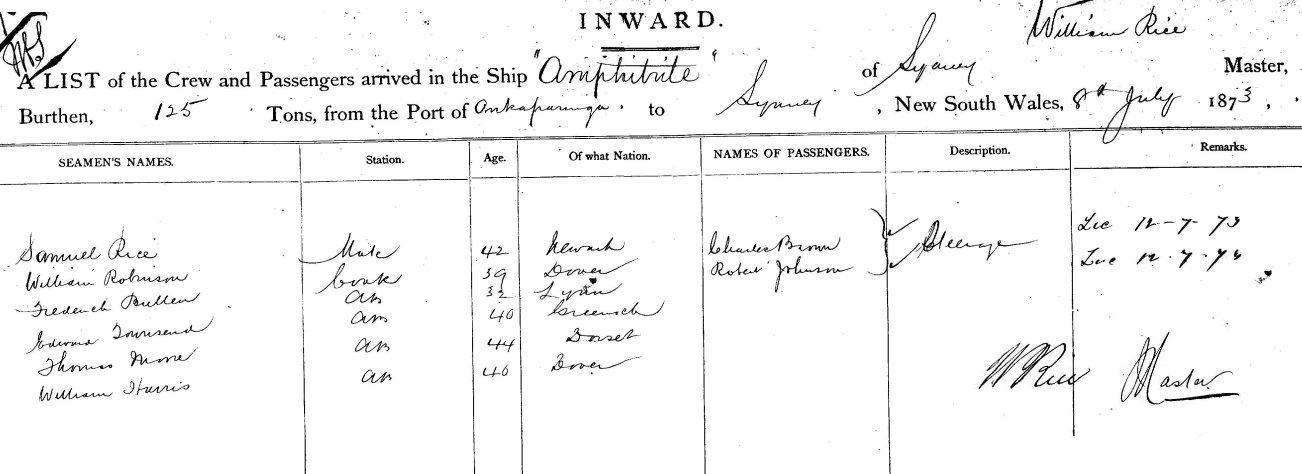 INWARD.
William Rice
A LIST of the Crew and Passengers arrived in the Ship "Amphitrite" of Sydney Master,
Burthen, 125 Tons, from the Port of Onkaparinga. to Sydney, New South Wales, 8th July 1873,
SEAMEN'S NAMES. Station. Age. Of what Nation. NAMES OF PASSENGERS. Description. Remarks.
Samuel Rice Mate 42 Newark Charles Brown Steerage 12-7-73
William Robinson Cook 39 Dover Robert Johnson 12.7.73
Frederick Bullen AB 32 Lynn
Edward Townsend AB 40 Greenock
Thomas Moore AB 44 Dorset
William Harris AB 40 Dover
W Rice Master